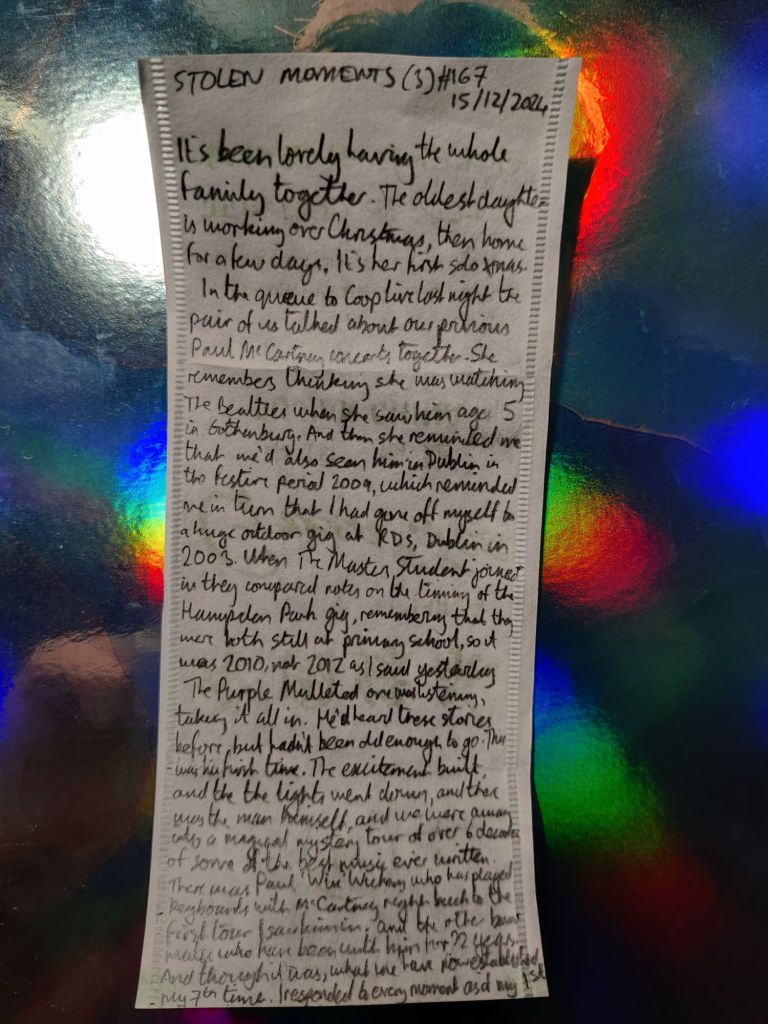 STOLEN MOMENTS (3) #167
15/12/2024
It's been lovely having the whole
family together. The oldest daughter
is working over Christmas, then home
for a few days. It's her first solo Xmas.
In the queue to Coop Live last night the
pair of us talked about our previous
Paul McCartney concerts together. She
remembers thinking she was watching
The Beatles when she saw him age 5
in Gothenburg. And then she reminded me
that we'd also seen him in Dublin in
the festive period 2009, which reminded
me in turn that I had gone off myself to
a huge outdoor gig at RDS, Dublin in
2003. When The Masters Student joined
in they compared notes on the timing of the
Hampden Park gig, remembering that they
were both still at primary school, so it
was 2010, not 2012 as I said yesterday
The Purple Mulleted one was listening,
taking it all in. He'd heard these stories
before, but hadn't been old enough to go. This
was his first time. The excitement built,
and the the lights went down, and there
was the man himself, and we were away
into a magical mystery tour of over 6 decades
of some of the best music ever written.
There was Paul 'Wix' Wickens who has played
keyboards with McCartney right back to the
first tour I saw him in. and the other band
who have been with him for 22 years.
And though it was, what we have now established
my 7th time. I responded to every moment as if my 1st